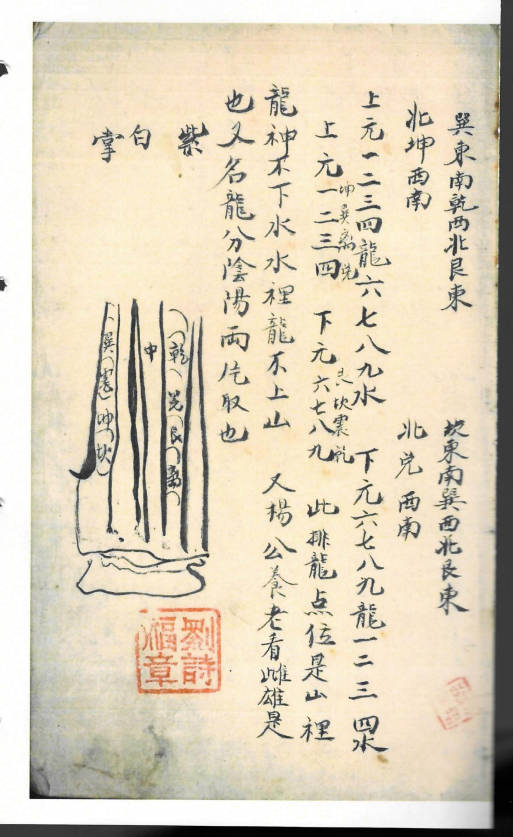 巽東南乾西北艮東
坎東南巽西北艮東
北坤西南
北兌西南
上元一二三四龍六七八九水 下元六七八九龍一二三四水
坤巽离兑
艮坎震乾
上元一二三四 下元六七八九 此排龍点位是山裡
龍神不下水水裡龍不上山 又楊公養老看雌雄是
也又名龍分陰陽兩片取也
紫白掌
乾兑艮离
中
巽震坤坎
劉詩福章